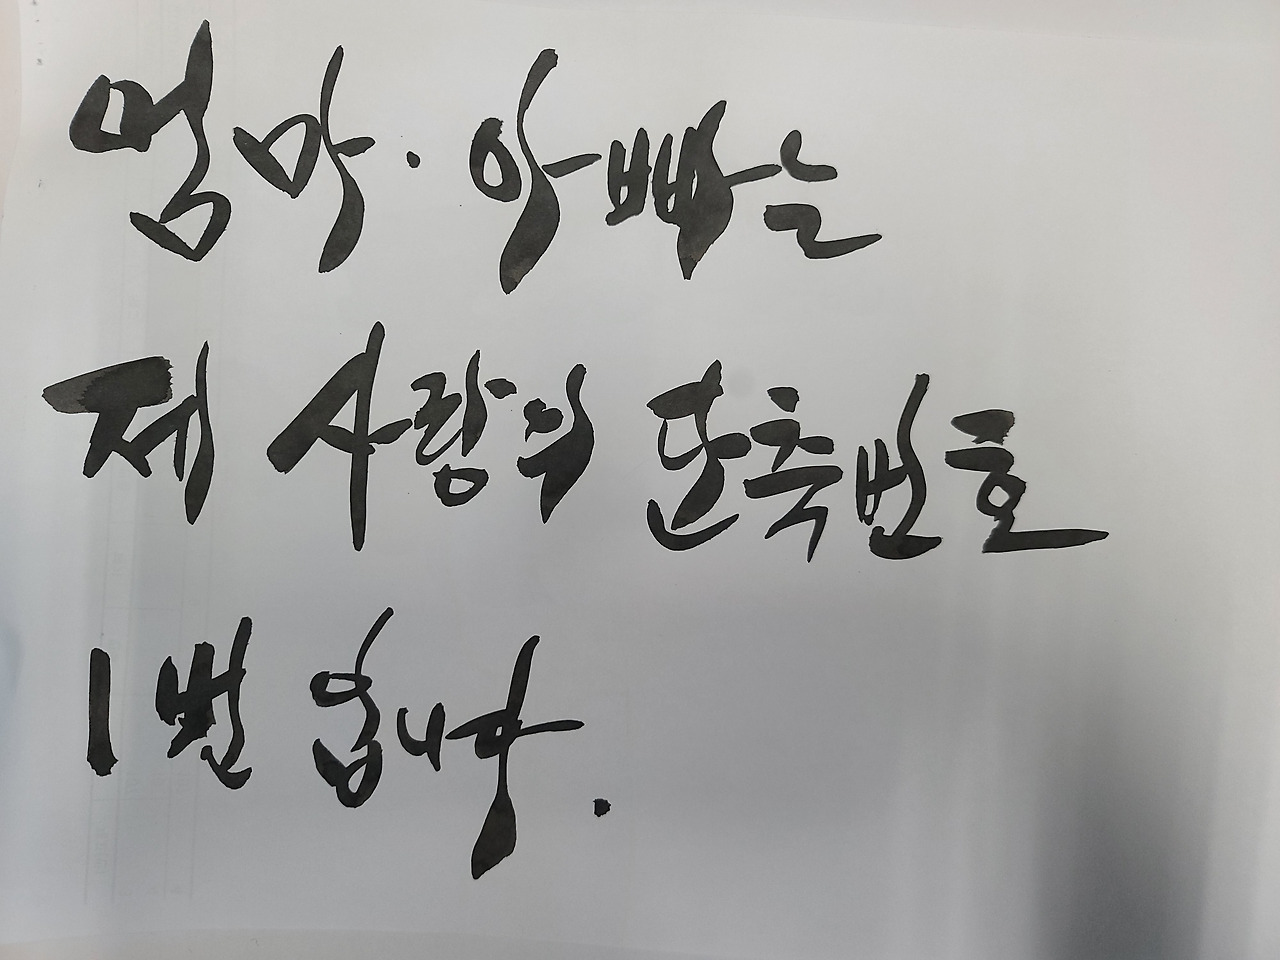 엄마·아빠는
제 사랑의 단축번호
1번 입니다.